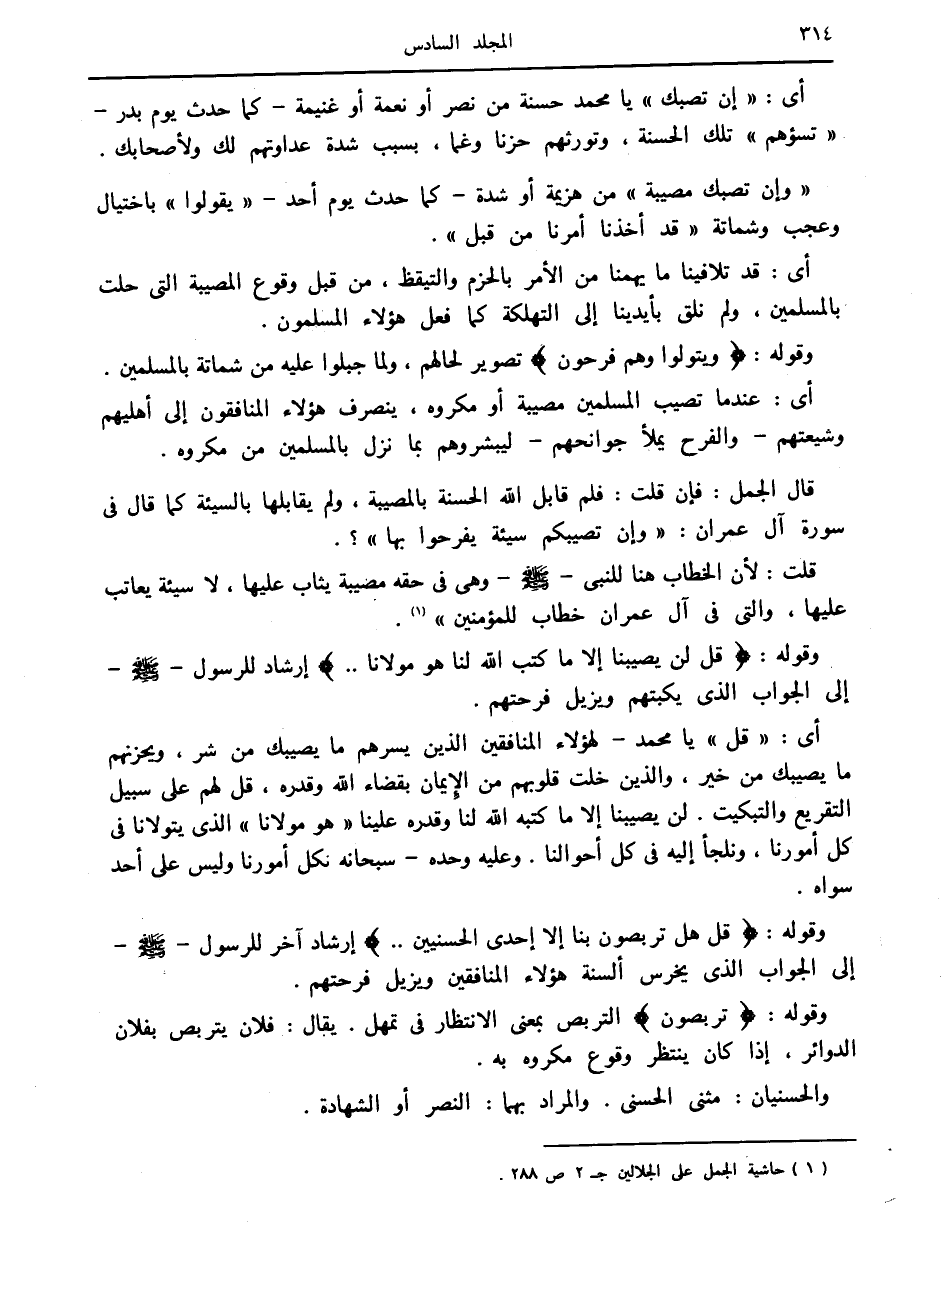 ٣١٤
المجلد السادس
أى : « إن تصبك » يا محمد حسنة من نصر أو نعمة أو غنيمة – كما حدث يوم بدر –
« تسؤهم » تلك الحسنة ، وتورثهم حزنا وغما ، بسبب شدة عداوتهم لك ولأصحابك .
« وإن تصبك مصيبة » من هزيمة أو شدة – كما حدث يوم أحد – « يقولوا » باختيال
وعجب وشماتة « قد أخذنا أمرنا من قبل » .
أى : قد تلافينا ما يهمنا من الأمر بالحزم والتيقظ ، من قبل وقوع المصيبة التى حلت
بالمسلمين ، ولم نلق بأيدينا إلى التهلكة كما فعل هؤلاء المسلمون .
وقوله : ﴿ ويتولوا وهم فرحون ﴾ تصوير لحالهم ، ولما جبلوا عليه من شماتة بالمسلمين .
أى : عندما تصيب المسلمين مصيبة أو مكروه ، ينصرف هؤلاء المنافقون إلى أهليهم
وشيعتهم – والفرح يملأ جوانحهم – ليبشروهم بما نزل بالمسلمين من مكروه .
قال الجمل : فإن قلت : فلم قابل الله الحسنة بالمصيبة ، ولم يقابلها بالسيئة كما قال فى
سورة آل عمران : « وإن تصيبكم سيئة يفرحوا بها » ؟ .
قلت : لأن الخطاب هنا للنبى – ﷺ – وهى فى حقه مصيبة يثاب عليها ، لا سيئة يعاتب
عليها ، والتى فى آل عمران خطاب للمؤمنين » (١) .
وقوله : ﴿ قل لن يصيبنا إلا ما كتب الله لنا هو مولانا .. ﴾ إرشاد للرسول – ﷺ –
إلى الجواب الذى يكبتهم ويزيل فرحتهم .
أى : « قل » يا محمد – لهؤلاء المنافقين الذين يسرهم ما يصيبك من شر ، ويحزنهم
ما يصيبك من خير ، والذين خلت قلوبهم من الإيمان بقضاء الله وقدره ، قل لهم على سبيل
التقريع والتبكيت . لن يصيبنا إلا ما كتبه الله لنا وقدره علينا « هو مولانا » الذى يتولانا فى
كل أمورنا ، ونلجأ إليه فى كل أحوالنا . وعليه وحده – سبحانه نكل أمورنا وليس على أحد
سواه .
وقوله : ﴿ قل هل تربصون بنا إلا إحدى الحسنيين .. ﴾ إرشاد آخر للرسول – ﷺ –
إلى الجواب الذى يخرس ألسنة هؤلاء المنافقين ويزيل فرحتهم .
وقوله : ﴿ تربصون ﴾ التربص بمعنى الانتظار فى تمهل . يقال : فلان يتربص بفلان
الدوائر ، إذا كان ينتظر وقوع مكروه به .
والحسنيان : مثنى الحسنى . والمراد بهما : النصر أو الشهادة .
( ١ ) حاشية الجمل على الجلالين جـ ٢ ص ٢٨٨ .